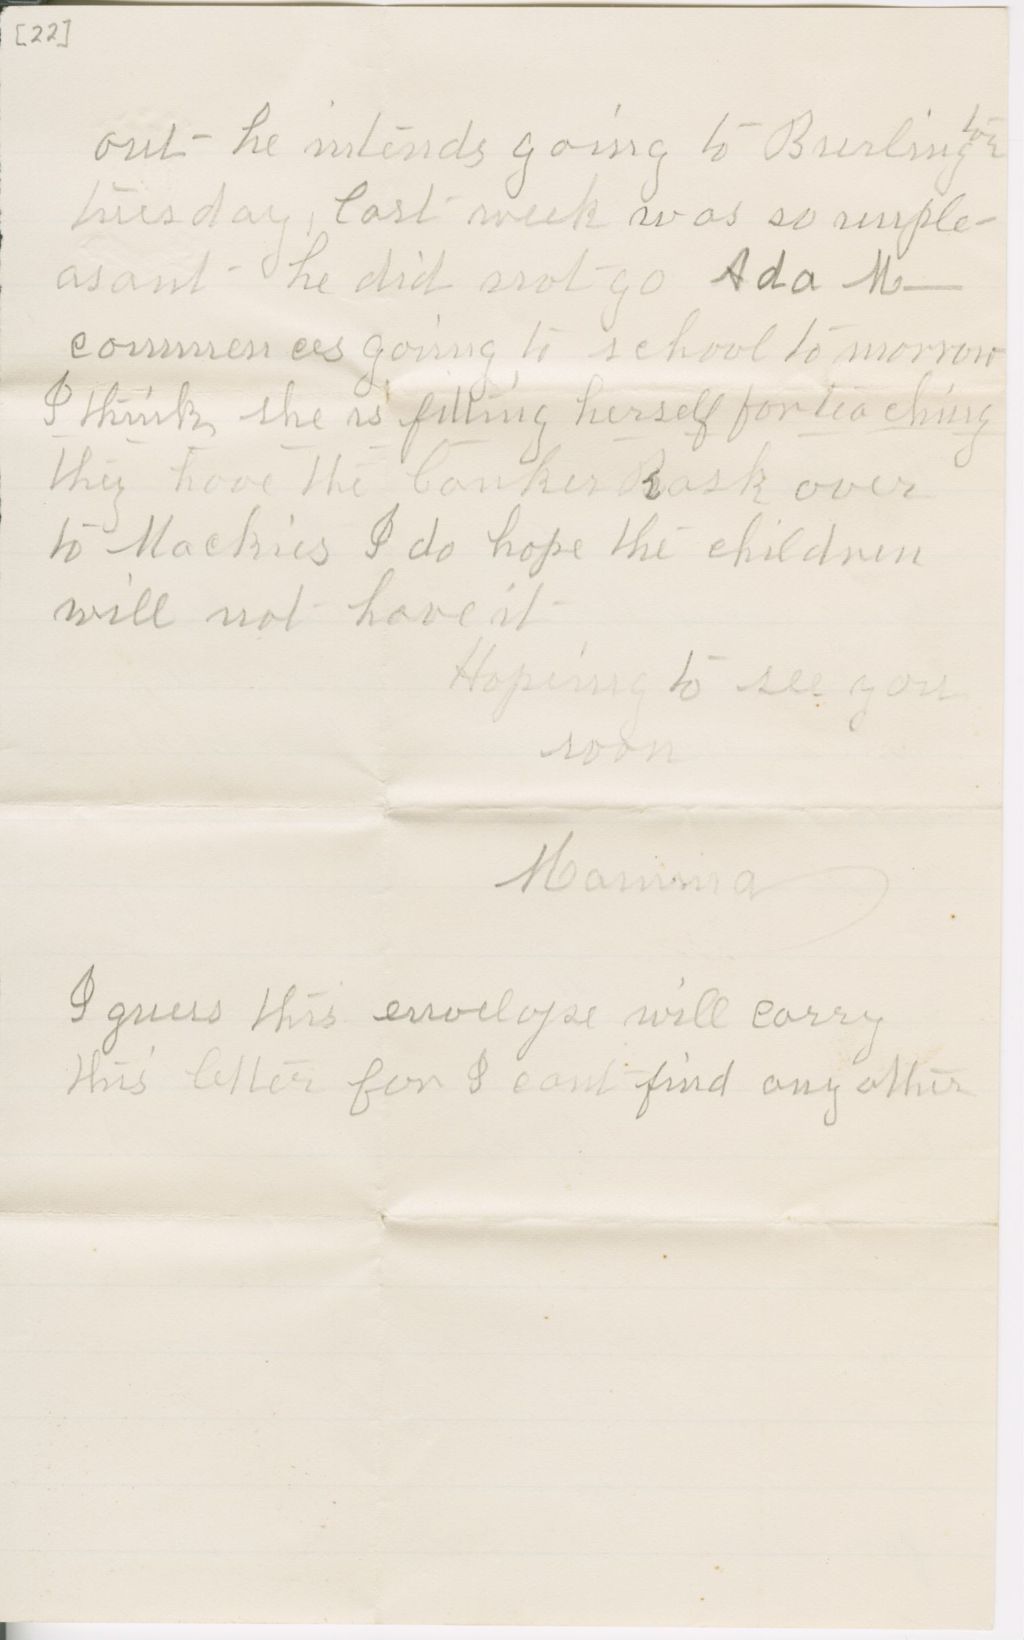 [22]
out he intends going to Burlington
tuesday, last week was so unple-
asant he did not go Ada M—
commences going to school to morrow
I think she is fitting herself for teaching
they have the Canker Rask over
to Mackies I do hope the children
will not have it
Hoping to see you
soon
Mamma
I guess this envelope will carry
this letter for I cant find any other